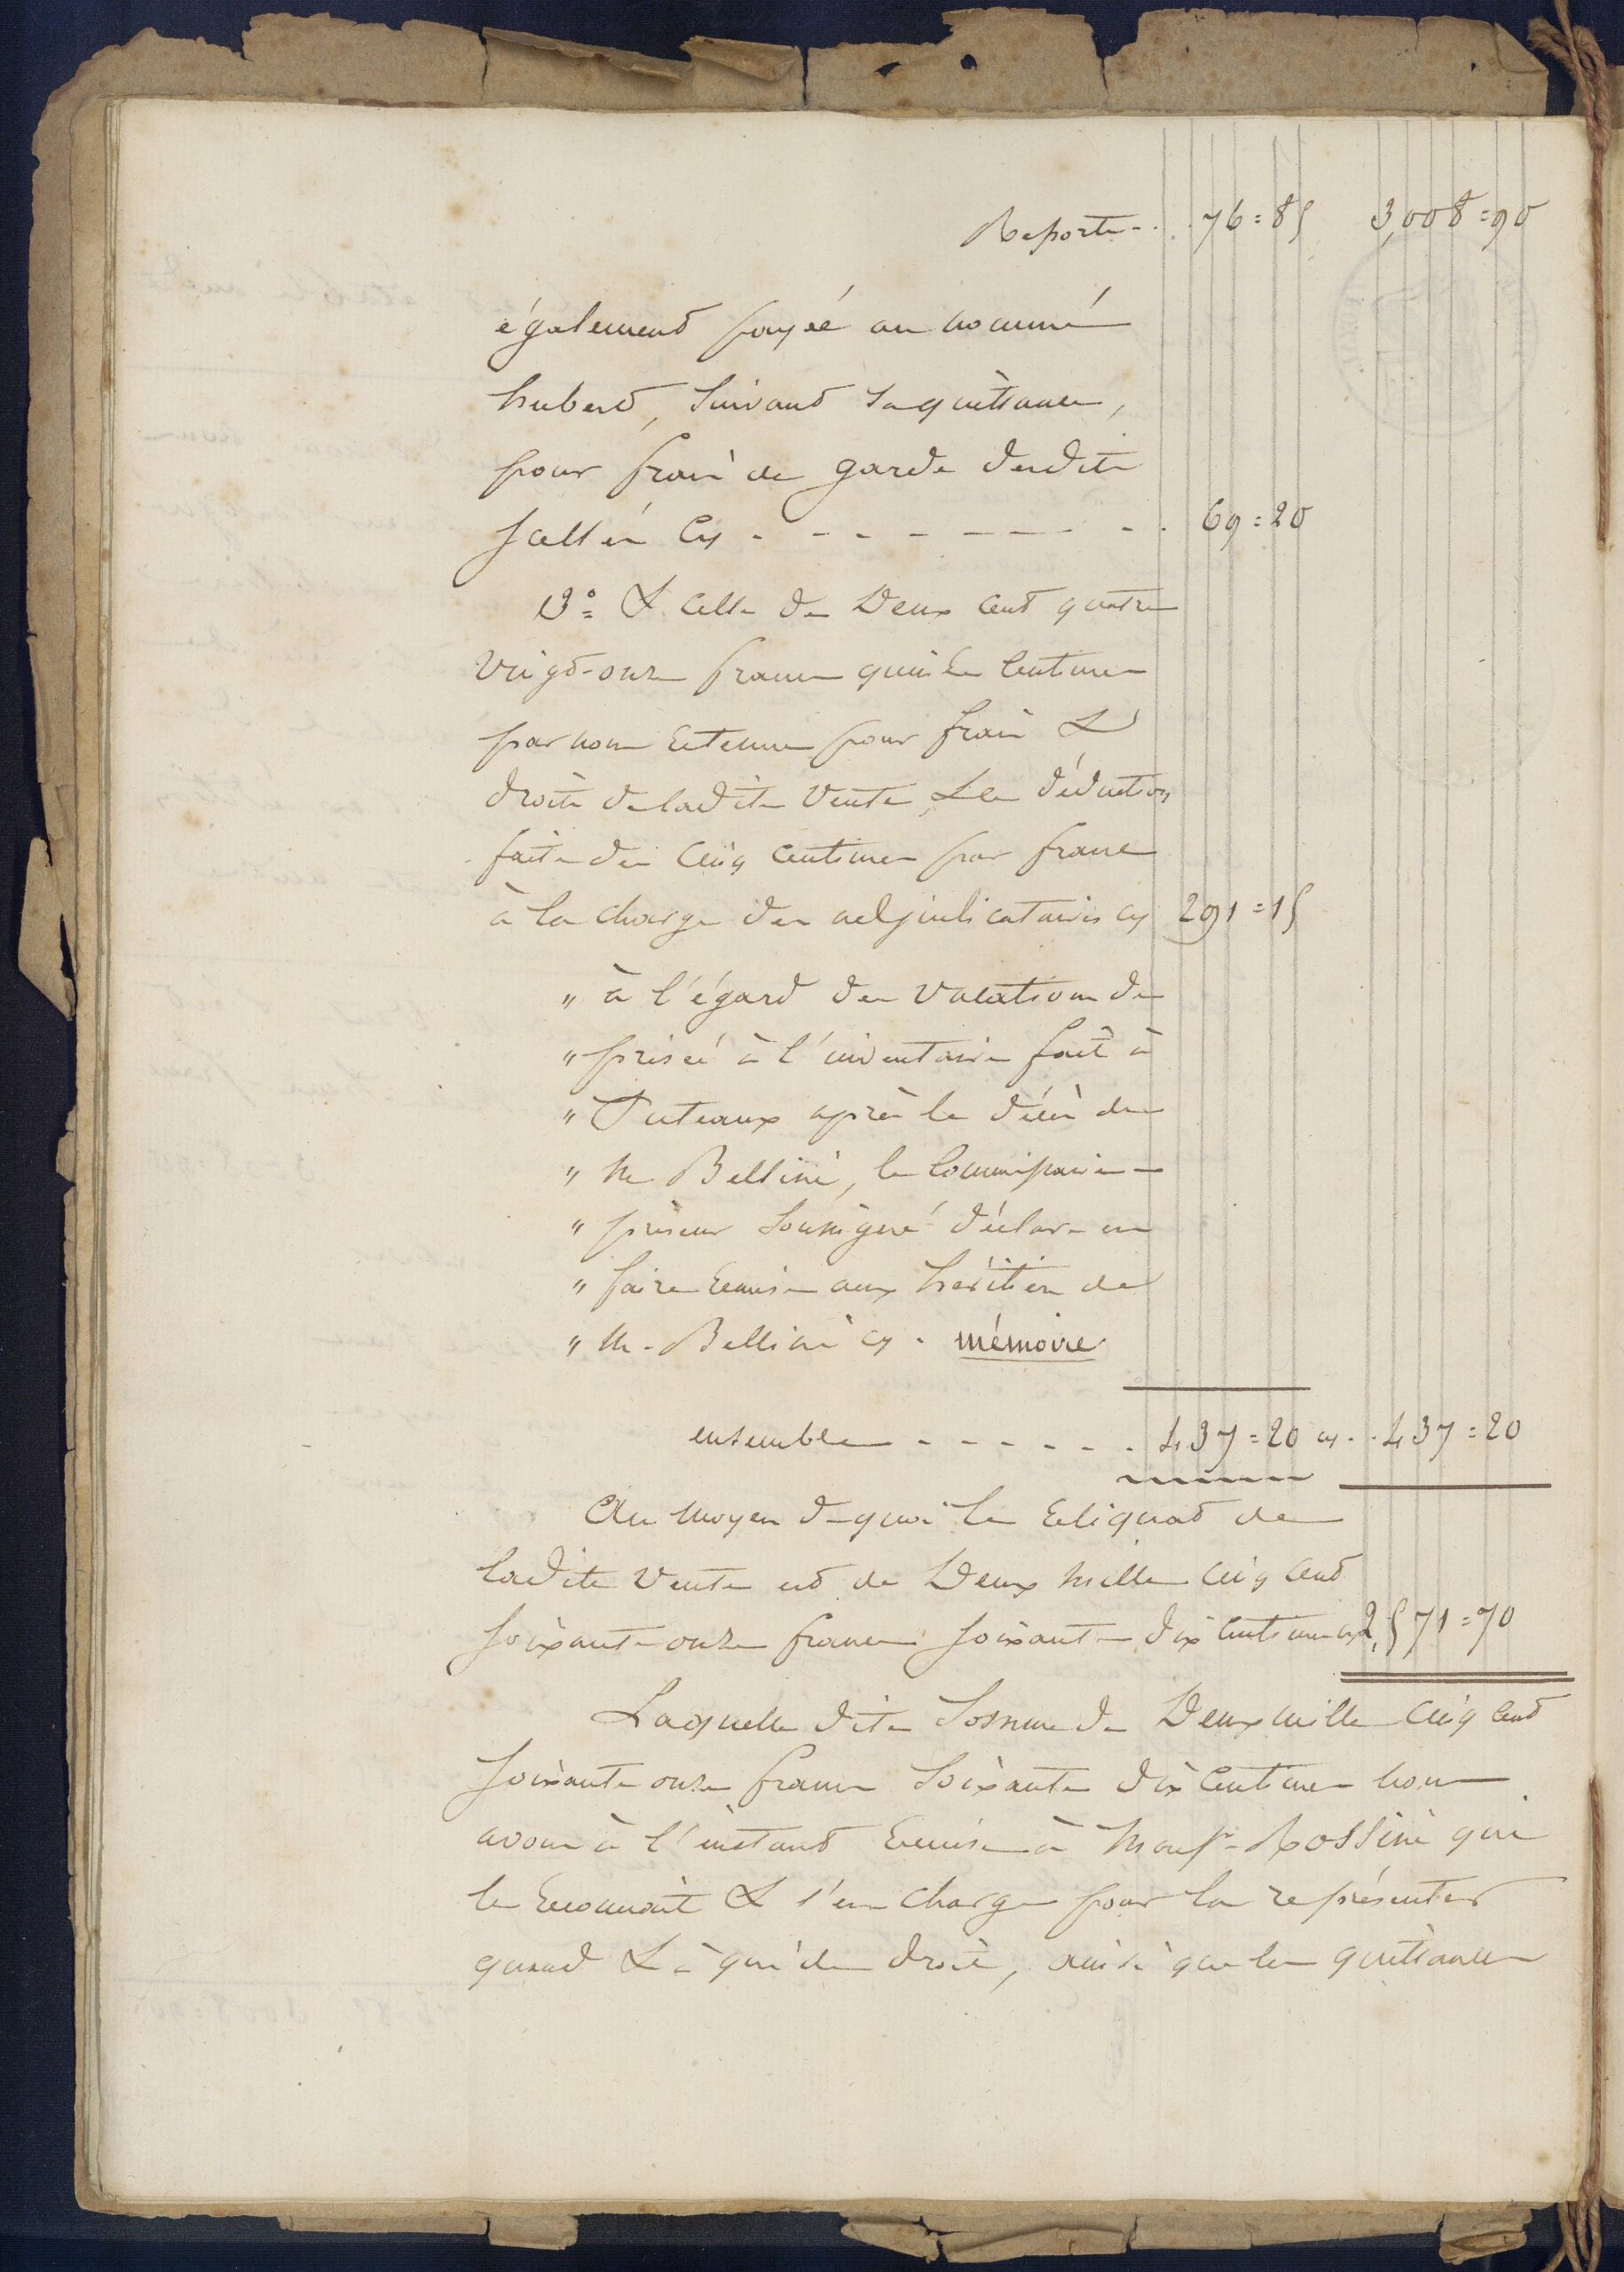 Reporte - . . 76=85 3,008=90
également payée au nommé
hubert, suivant sa quittance,
pour frais de garde desdits
scellés Cy - - - - - - - - - . 69=20
3°= & celle de Deux cent quatre
vingt-onze francs quinze centimes
par nous retenue pour frais &
droits de ladite vente, la déduction
faite des cinq centimes par franc
à la charge des adjudicataires cy 291=15
" à l'égard des vacations de
" prisée à l'inventaire fait à
" Puteaux après le décès de
" M. Bellini, le Commissaire-
" priseur soussigné déclare en
" faire remise aux héritiers de
" M. Bellini cy. mémoire
ensemble - - - - - - . 437=20 cy . . 437=20
Au moyen de quoi le reliquat de
ladite vente est de Deux mille cinq cent
soixante onze francs soixante dix centimes cy 2,571=70
Laquelle dite Somme de Deux mille cinq cent
soixante onze francs soixante dix centimes nous
avons à l'instant remise à Monsr. Rossini qui
le reconnait & s'en charge pour la représenter
quand & à qui de droit, ainsi que les quittances